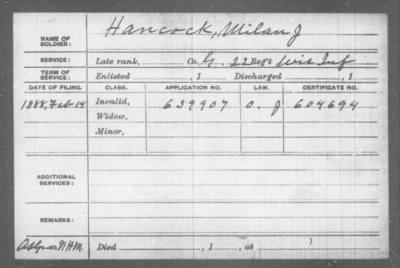 Hancock, Milan J
NAME OF SOLDIER:
SERVICE: Late rank, Co. G, 22 Reg't Wis Inf
TERM OF SERVICE: Enlisted , 1 Discharged , 1
DATE OF FILING. CLASS. APPLICATION NO. LAW. CERTIFICATE NO.
1888, Feb 14 Invalid, 639907 O. J 604694
Widow,
Minor,
ADDITIONAL SERVICES:
REMARKS:
N.H.M. Died , 1 , at